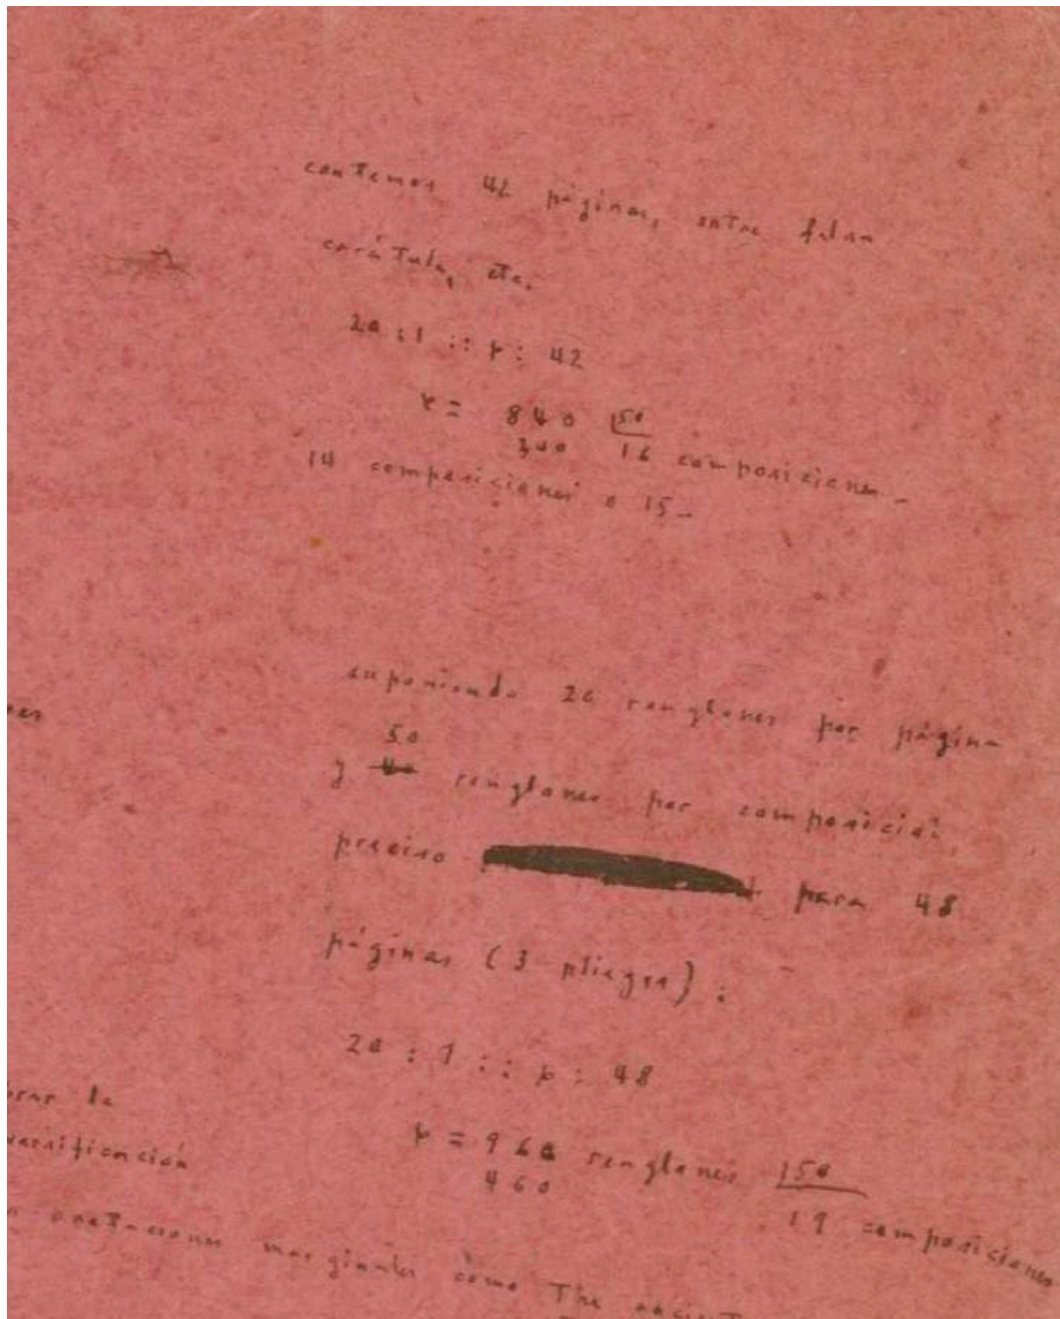 contemos 42 páginas, entre falsa
carátula, etc.
20 : 1 :: p : 42
x = 840 |50
300 16 composiciones –
14 composiciones o 15 –
suponiendo 20 renglones por página
50
y 40 renglones por composición,
preciso para 48
páginas (3 pliegos) :
20 : 1 :: p : 48
p = 960 renglones |50
460 19 composiciones
es
de
versificación
anotaciones marginales como The ancient